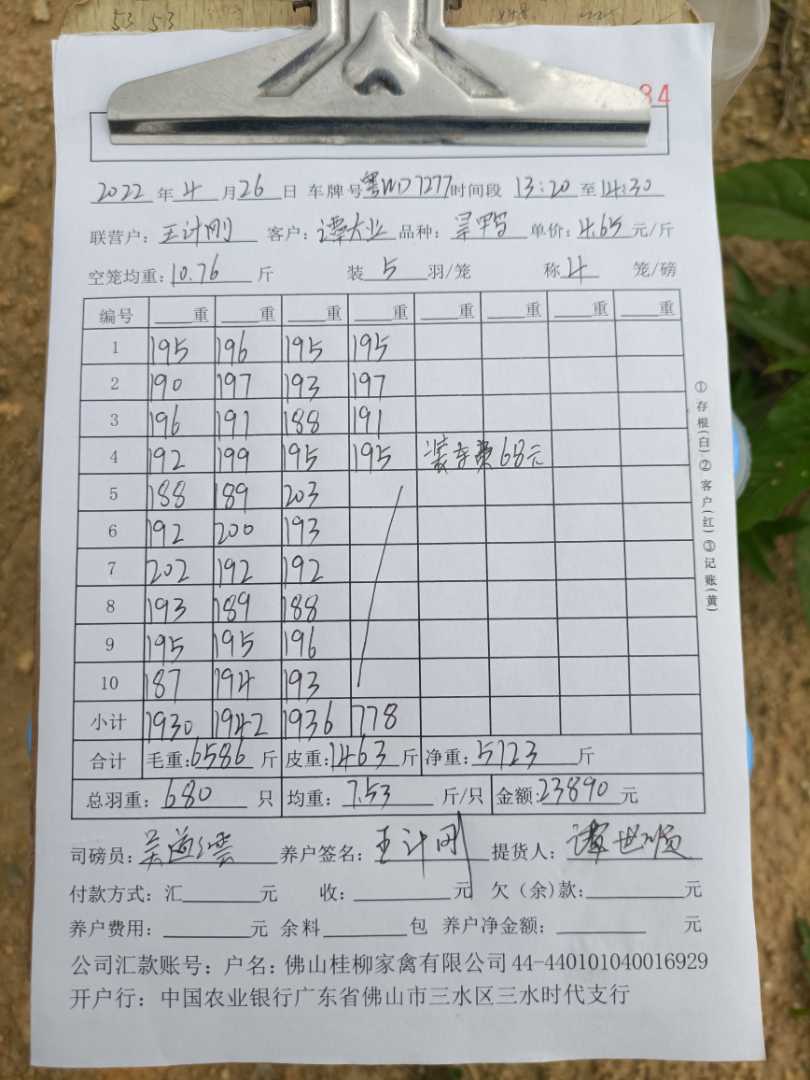 53 53
84
2022年4月26日 车牌号粤WD7277时间段 13:20至14:30
联营户：王计刚 客户：谭大业 品种：旱鸭 单价：4.65元/斤
空笼均重：10.76斤 装5羽/笼 称4笼/磅
编号 重 重 重 重 重 重 重 重
1 195 196 195 195
2 190 197 193 197
3 196 191 188 191
4 192 199 195 195 装车费68元
5 188 189 203
6 192 200 193
7 202 192 192
8 193 189 188
9 195 195 196
10 187 194 193
小计 1930 1942 1936 778
合计 毛重：6586斤 皮重：1463斤 净重：5123斤
总羽重：680只 均重：7.53斤/只 金额：23890元
司磅员： 养户签名：王计刚 提货人：谭世顺
付款方式：汇 元 收： 元 欠（余）款： 元
养户费用： 元 余料 包 养户净金额： 元
公司汇款账号：户名：佛山桂柳家禽有限公司 44-440101040016929
开户行：中国农业银行广东省佛山市三水区三水时代支行
①存根（白）②客户（红）③记账（黄）